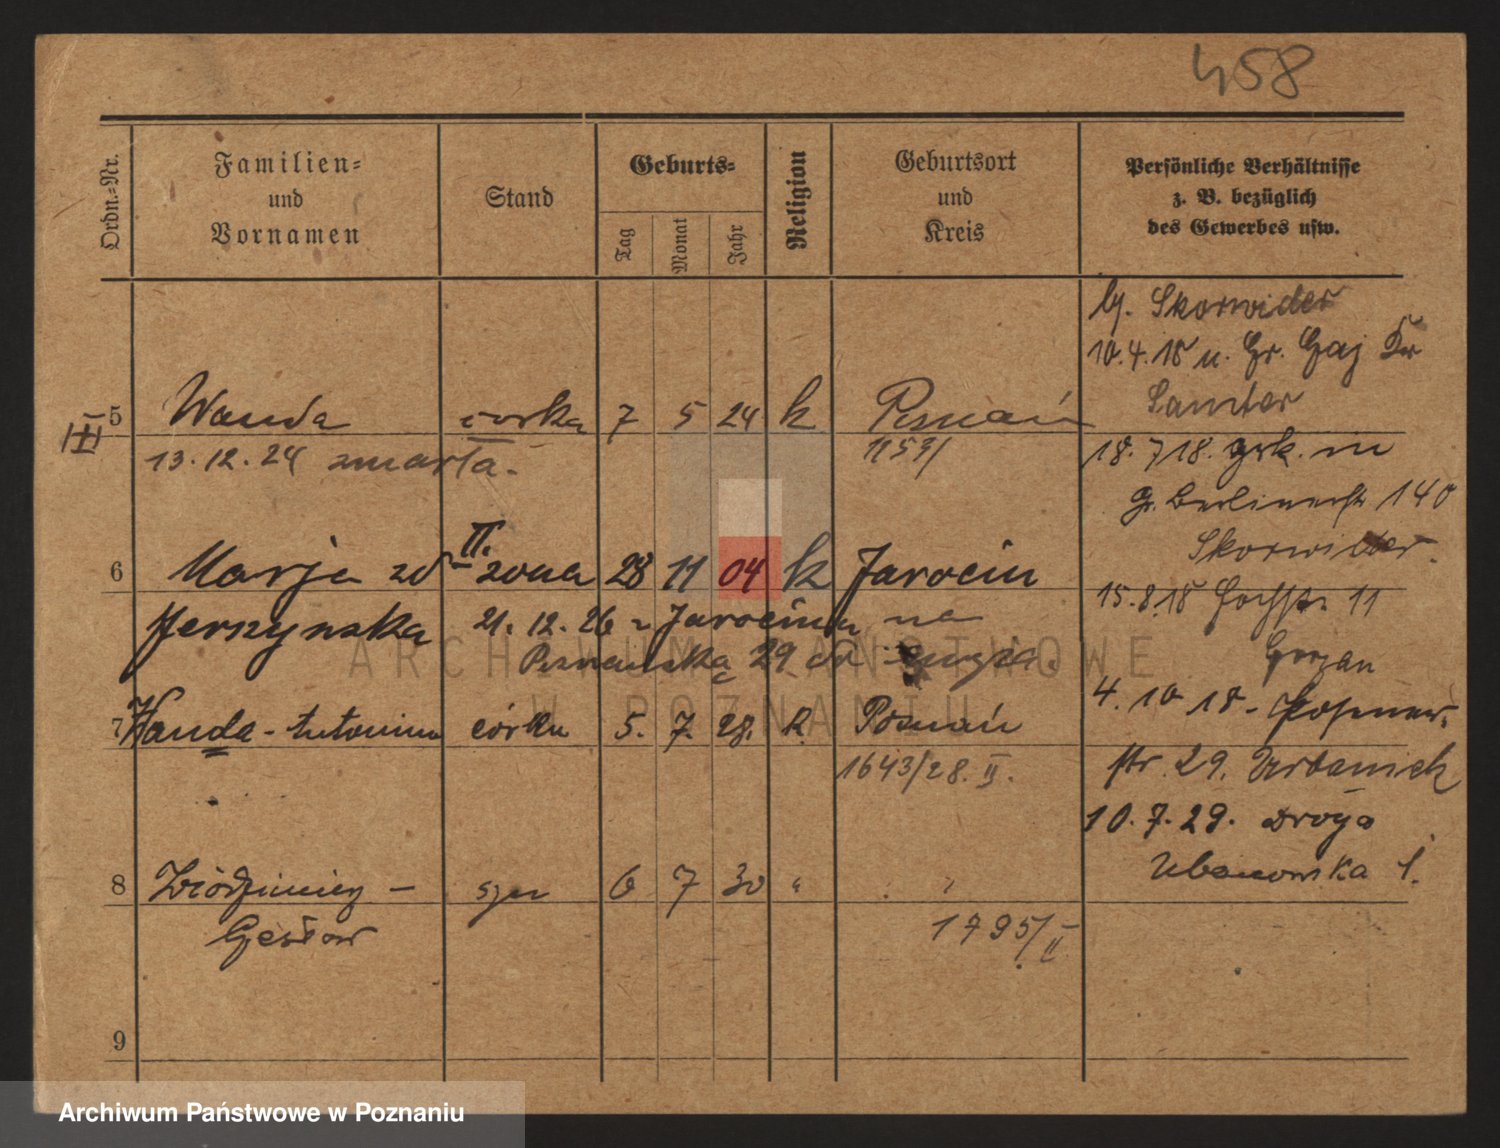 458
Ordn.-Nr.
Familien-
und
Vornamen
Stand
Geburts-
Tag
Monat
Jahr
Religion
Geburtsort
und
Kreis
Persönliche Verhältnisse
z. B. bezüglich
des Gewerbes usw.
III
5 Wanda córka 7 5 24 k Poznań
13.12.24 zmarła. 1153/
6 Marja zd II. żona 28 11 04 k Jarocin
Jerzynska 21.12.26 z Jarocina na
Poznańska 29
7 Wanda - Antonina córka 5. 7. 28. k. Poznań
1643/28. II.
8 Włodzimierz - syn 6 7 30 "
Czesław 1795/II
9
Skorwider
10.4.18 u. Gr. Gaj Kr
Samter
18.7 18. zrk. in
Gr. Berlinerstr 140
Skorwider.
15.8.18 11
4.10 18 - Posener
str. 29. Urbaniak
10.7.29. Droga
Urbanowska 1.
ARCHIWUM PAŃSTWOWE
W POZNANIU
Archiwum Państwowe w Poznaniu